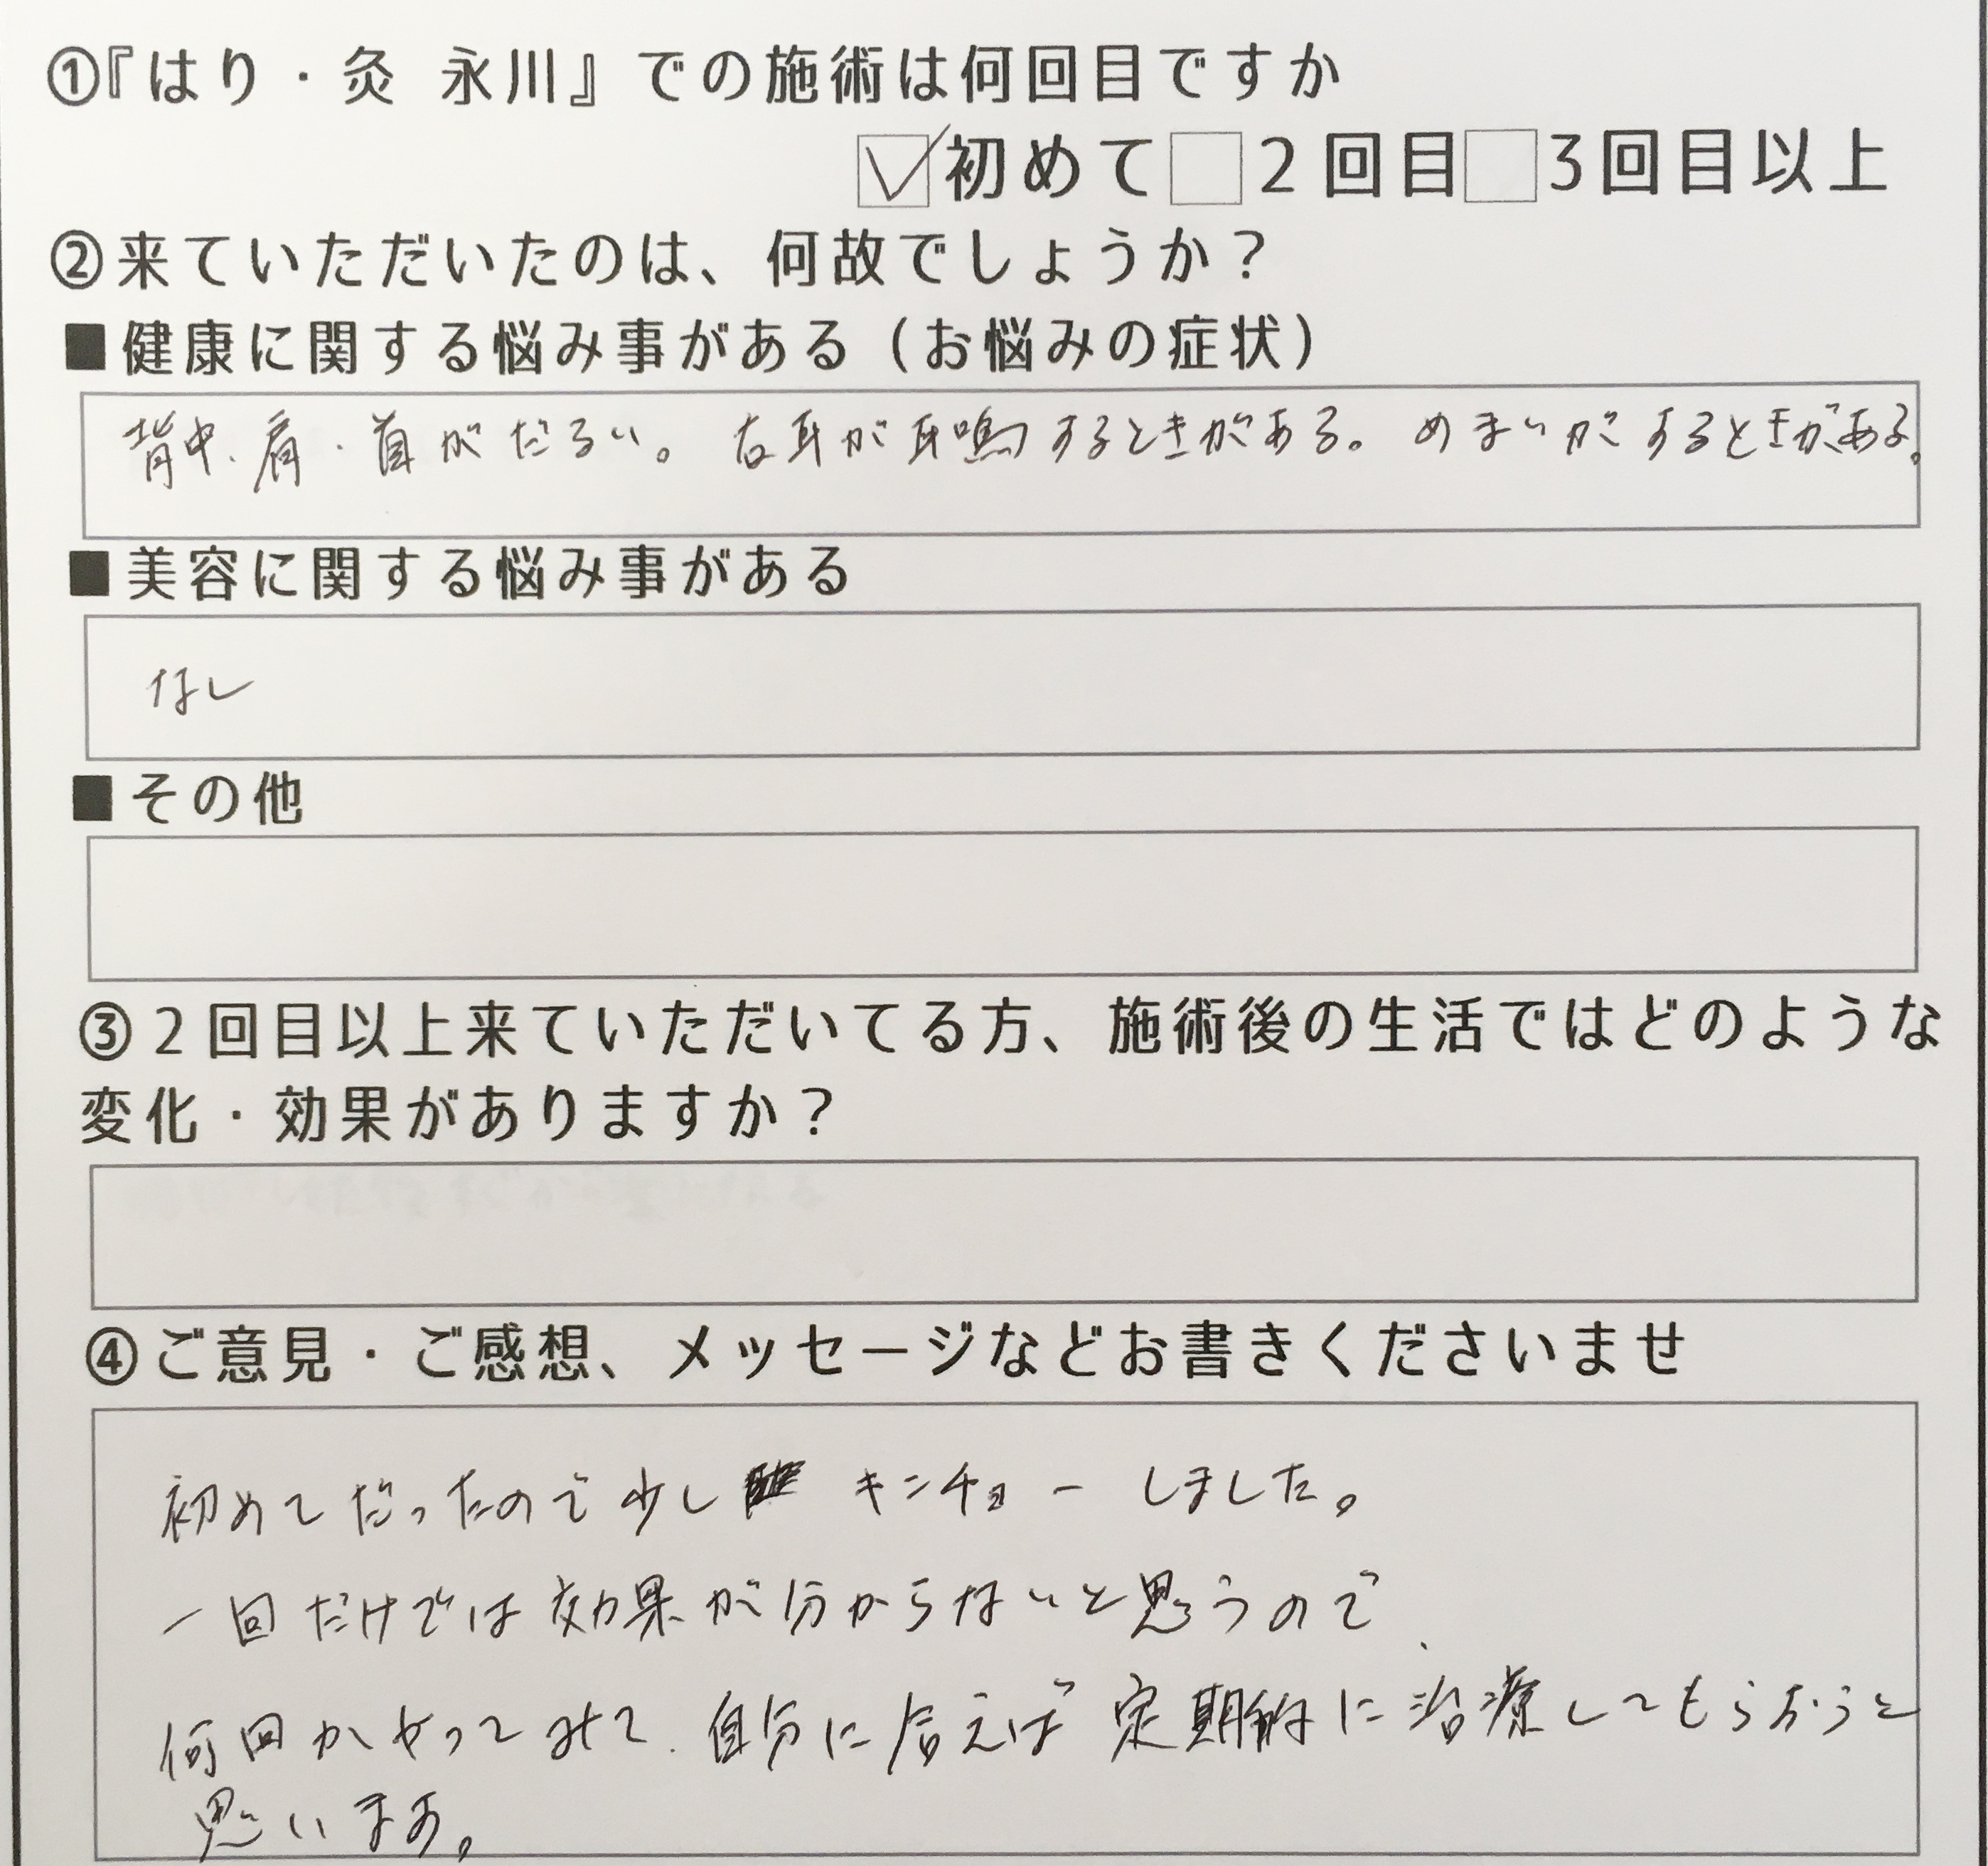 ①『はり・灸 永川』での施術は何回目ですか
☑初めて□2回目□3回目以上
②来ていただいたのは、何故でしょうか？
■健康に関する悩み事がある（お悩みの症状）
背中、肩・首がだるい。右耳が耳鳴するときがある。めまいがするときがある。
■美容に関する悩み事がある
なし
■その他
③2回目以上来ていただいてる方、施術後の生活ではどのような
変化・効果がありますか？
④ご意見・ご感想、メッセージなどお書きくださいませ
初めてだったので少し キンチョーしました。
一回だけでは効果が分からないと思うので、
何回かやってみて、自分に合えば定期的に治療してもらおうと
思います。